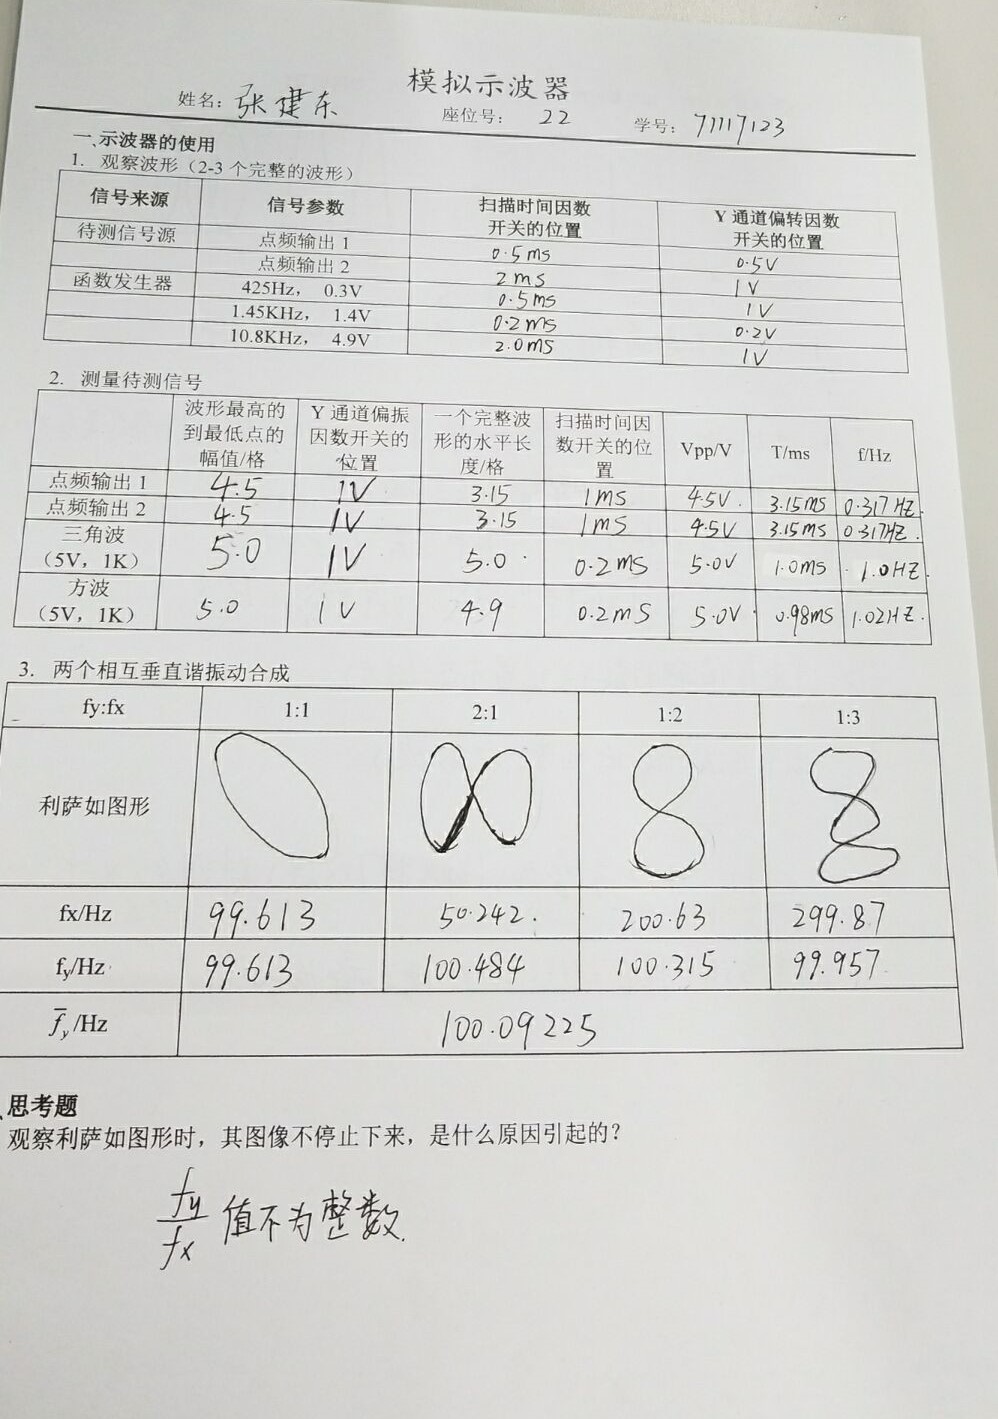 模拟示波器
姓名：张建东 座位号： 22 学号：71117123
一、示波器的使用
1. 观察波形（2-3 个完整的波形）
信号来源 信号参数 扫描时间因数开关的位置 Y 通道偏转因数开关的位置
待测信号源 点频输出 1 0.5ms 0.5V
点频输出 2 2ms 1V
函数发生器 425Hz， 0.3V 0.5ms 1V
1.45KHz， 1.4V 0.2ms 0.2V
10.8KHz， 4.9V 2.0ms 1V
2. 测量待测信号
波形最高的到最低点的幅值/格 Y 通道偏振因数开关的位置 一个完整波形的水平长度/格 扫描时间因数开关的位置 Vpp/V T/ms f/Hz
点频输出 1 4.5 1V 3.15 1ms 4.5V. 3.15ms 0.317HZ.
点频输出 2 4.5 1V 3.15 1ms 4.5V 3.15ms 0.317HZ.
三角波（5V，1K） 5.0 1V 5.0 0.2ms 5.0V 1.0ms 1.0HZ.
方波（5V，1K） 5.0 1V 4.9 0.2ms 5.0V 0.98ms 1.02HZ.
3. 两个相互垂直谐振动合成
fy:fx 1:1 2:1 1:2 1:3
利萨如图形
fx/Hz 99.613 50.242. 200.63 299.87
fy/Hz 99.613 100.484 100.315 99.957
f̄y/Hz 100.09225
思考题
观察利萨如图形时，其图像不停止下来，是什么原因引起的？
fy/fx 值不为整数.